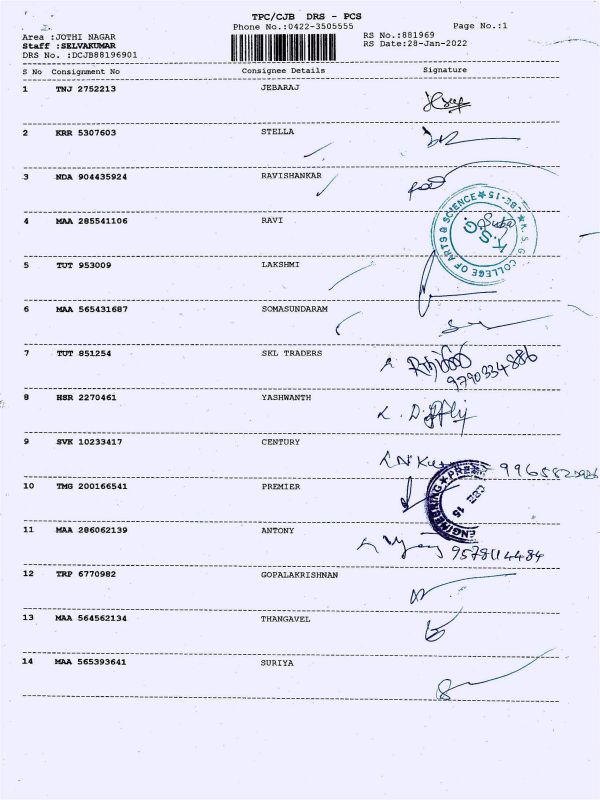 TPC/CJB DRS - PCS
Phone No.:0422-3505555
Page No.:1
Area :JOTHI NAGAR
RS No.:881969
Staff :SELVAKUMAR
RS Date:28-Jan-2022
DRS No. :DCJB88196901
S No Consignment No Consignee Details Signature
1 TNJ 2752213 JEBARAJ
2 KRR 5307603 STELLA
3 NDA 904435924 RAVISHANKAR
K. S. G COLLEGE OF ARTS & SCIENCE ★ CBE-15 ★
K.S.G.
4 MAA 285541106 RAVI
5 TUT 953009 LAKSHMI
6 MAA 565431687 SOMASUNDARAM
7 TUT 851254 SKL TRADERS
9790334886
8 HSR 2270461 YASHWANTH
9 SVK 10233417 CENTURY
10 TMG 200166541 PREMIER
ENGINEERING ★ CBE 15
11 MAA 286062139 ANTONY
9578114484
12 TRP 6770982 GOPALAKRISHNAN
13 MAA 564562134 THANGAVEL
14 MAA 565393641 SURIYA